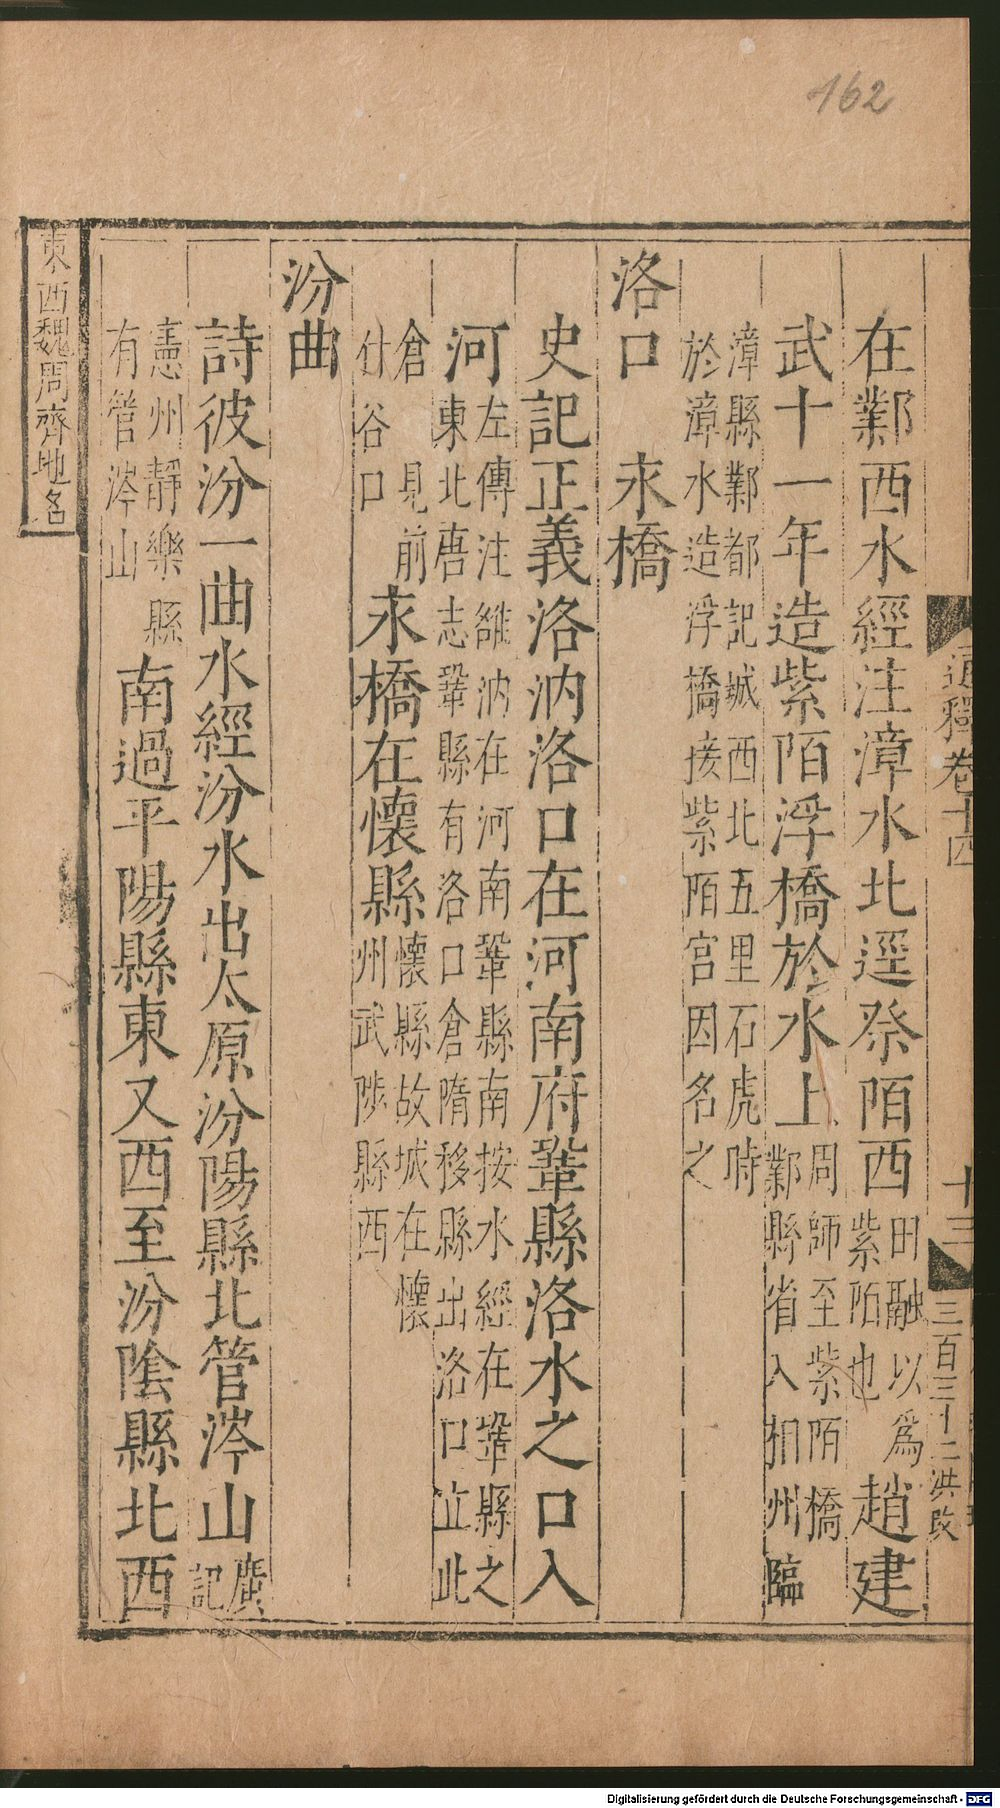 162
在鄴西水經注漳水北逕祭陌西田融以爲紫陌也趙建
武十一年造紫陌浮橋於水上周師至紫陌橋鄴縣省入相州臨
漳縣鄴都記城西北五里石虎時於漳水造浮橋接紫陌宫因名之
洛口　永橋
史記正義洛汭洛口在河南府鞏縣洛水之口入
河左傳注雒汭在河南鞏縣南按水經在鞏縣之東北唐志鞏縣有洛口倉隋移縣出洛口立此
倉見前什谷口永橋在懷縣懷縣故城在懷州武陟縣西
汾曲
詩彼汾一曲水經汾水出太原汾陽縣北管涔山廣記
憲州靜樂縣有管涔山南過平陽縣東又西至汾隂縣北西
東西魏周齊地名
通釋卷十四
十三
三百三十二洪改
Digitalisierung gefördert durch die Deutsche Forschungsgemeinschaft - DFG